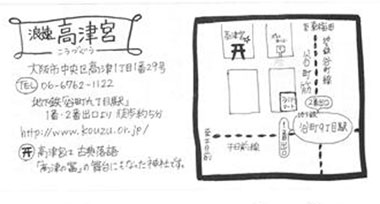 浪速
高津宮
こうづぐう
大阪市中央区高津1丁目1番29号
TEL 06-6762-1122
地下鉄「谷町九丁目駅」
1番・2番出口より 徒歩約5分
http://www.kouzu.or.jp/
高津宮は古典落語
「高津の富」の舞台にもなった神社です。
高津宮
地下鉄谷町線
谷町筋
2番出口
谷町9丁目駅
1番出口
千日前線